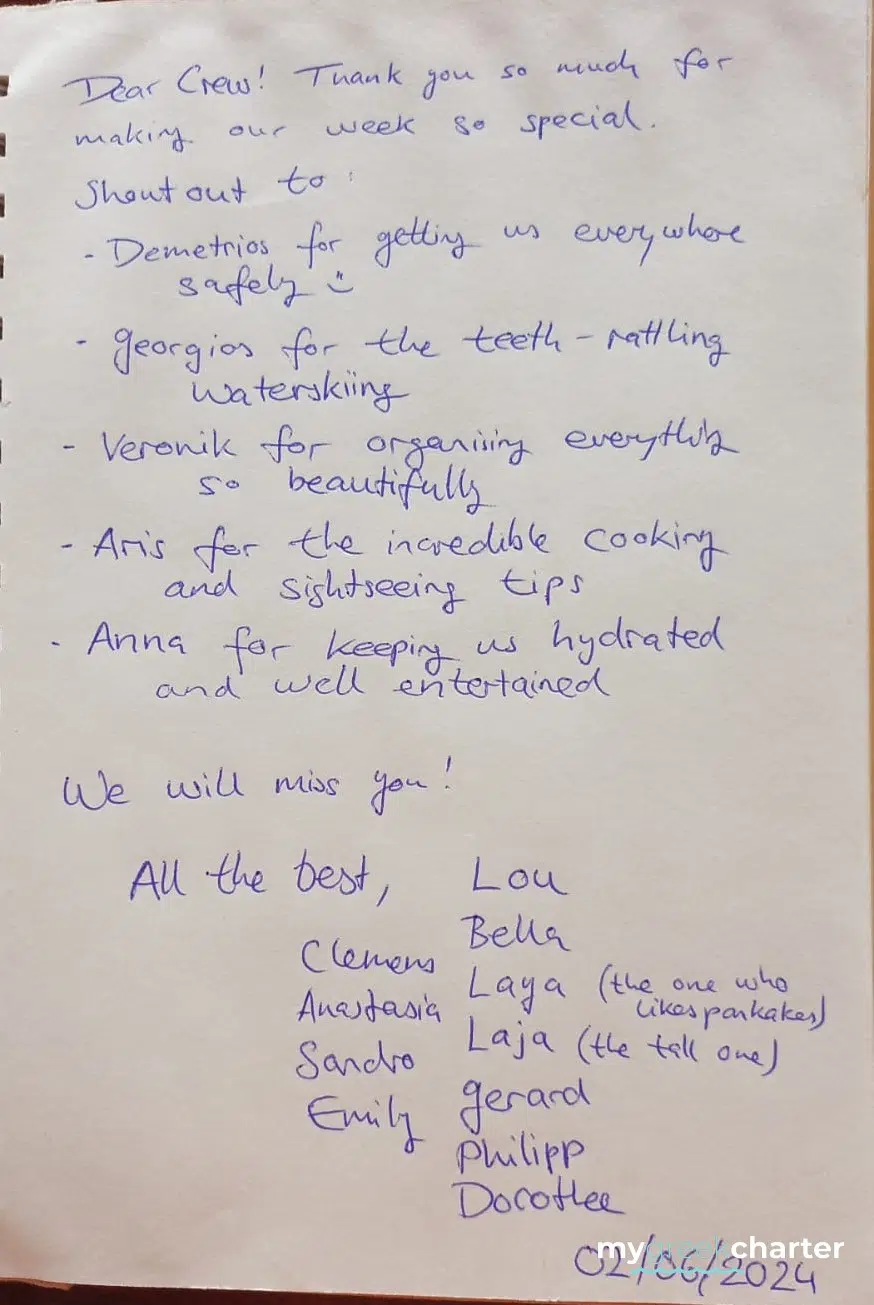 Dear Crew! Thank you so much for
making our week so special.
Shout out to:
- Demetrios for getting us everywhere
safely
- Georgios for the teeth-rattling
waterskiing
- Veronik for organising everything
so beautifully
- Aris for the incredible cooking
and sightseeing tips
- Anna for keeping us hydrated
and well entertained
We will miss you!
All the best,
Clemens
Anastasia
Sandro
Emily
Lou
Bella
Laya (the one who
likes pankakes)
Laja (the tall one)
Gerard
Philipp
Dorothee
my charter
02/06/2024